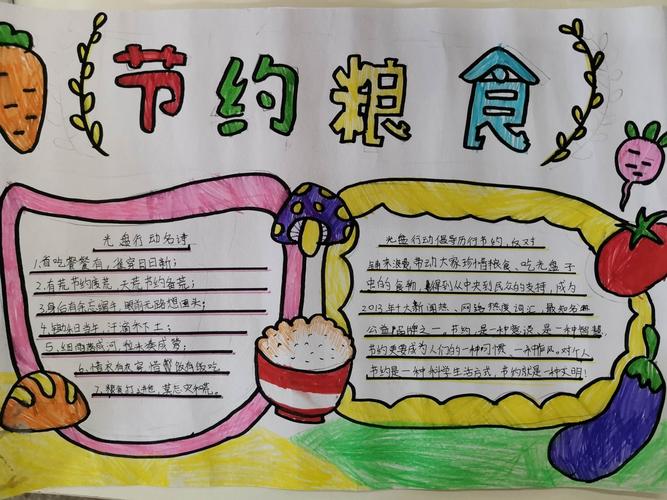 节约粮食
光盘行动名诗
1.省吃餐餐有,省穿日日新;
2.有荒节约度荒,无荒节约备荒。
3.身后有余忘缩手,眼前无路想回头;
4.锄禾日当午,汗滴禾下土;
5.细雨落成河,粒米凑成箩;
6.惜衣有衣穿 惜饭有饭吃
7.粮食打进仓 莫忘灾和荒。
光盘行动倡导厉行节约,反对
铺张浪费,带动大家珍惜粮食、吃光盘子
中的食物,得到从中央到民众的支持,成为
2013年十大新闻热、网络热度词汇,最知名
公益品牌之一。节约,是一种美德,是一种智慧
节约更要成为人们的一种习惯、一种作风。对个人
节约是一种科学生活方式,节约就是一种文明!